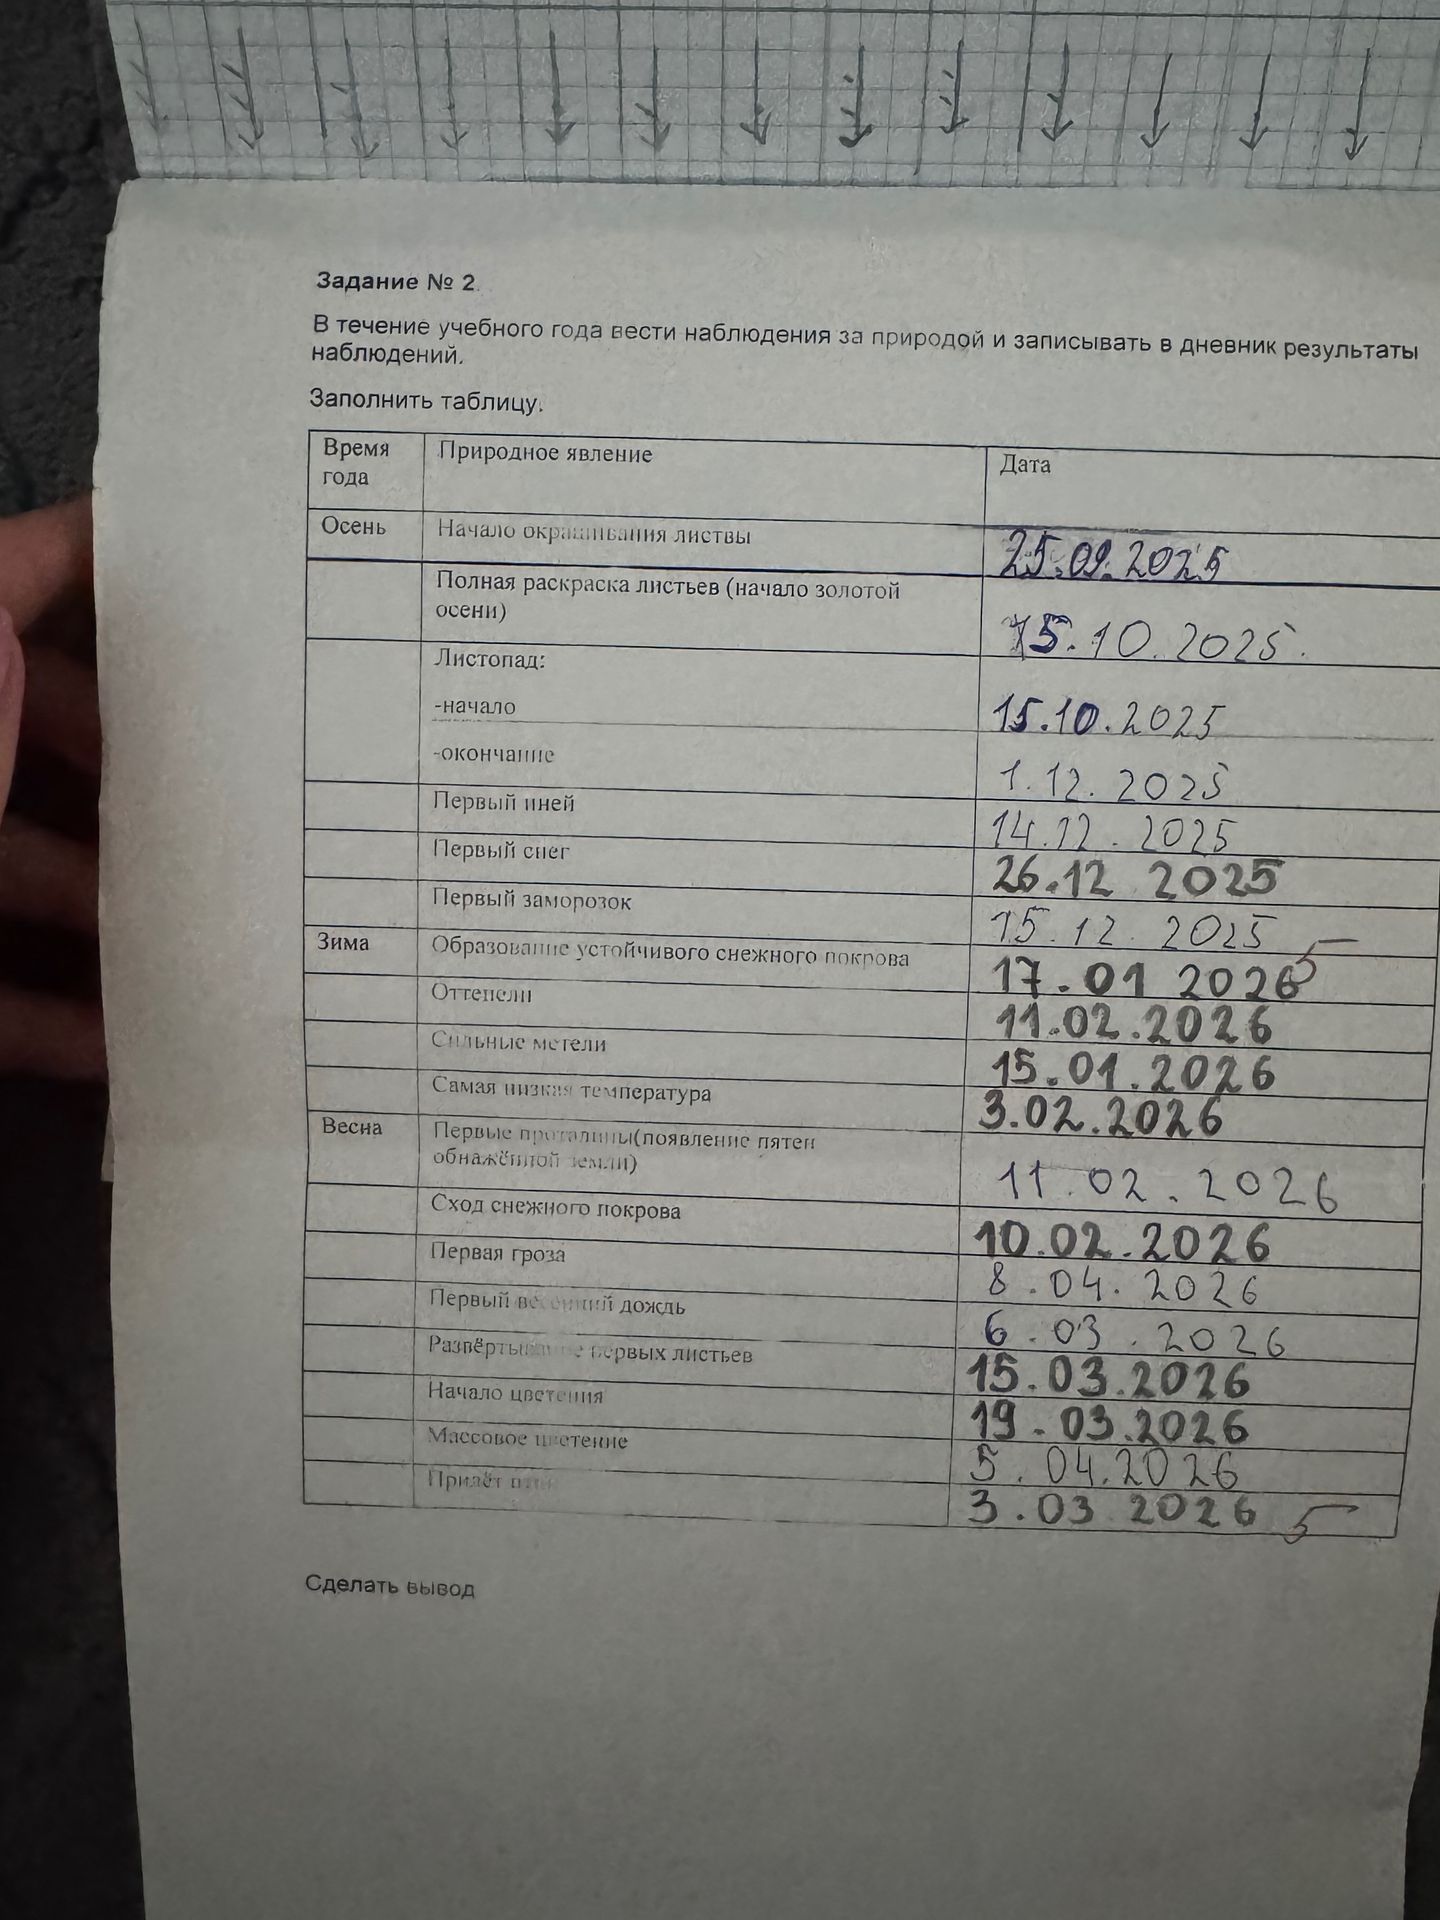 Задание № 2.
В течение учебного года вести наблюдения за природой и записывать в дневник результаты
наблюдений.
Заполнить таблицу.
Время года Природное явление Дата
Осень Начало окрашивания листвы 25.09.2025
Полная раскраска листьев (начало золотой осени) 15.10.2025.
Листопад:
-начало 15.10.2025
-окончание 1.12.2025
Первый иней 14.12.2025
Первый снег 26.12 2025
Первый заморозок 15.12.2025
Зима Образование устойчивого снежного покрова 17.01 2026 5
Оттепели 11.02.2026
Сильные метели 15.01.2026
Самая низкая температура 3.02.2026
Весна Первые проталины(появление пятен обнажённой земли) 11.02.2026
Сход снежного покрова 10.02.2026
Первая гроза 8.04.2026
Первый весенний дождь 6.03.2026
Развёртывание первых листьев 15.03.2026
Начало цветения 19.03.2026
Массовое цветение 5.04.2026
Прилёт 3.03 2026 5
Сделать вывод